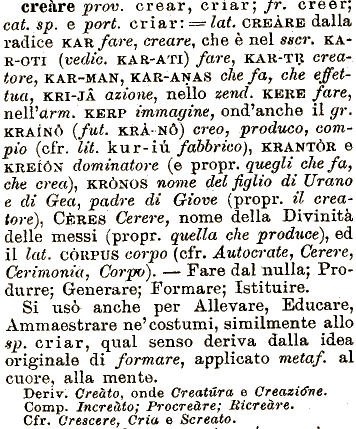 creàre prov. crear, criar; fr. créer;
cat. sp. e port. criar: = lat. CREÀRE dalla
radice KAR fare, creare, che è nel sscr. KA-
R-OTI (vedic. KAR-ATI) fare, KAR-TṚ crea-
tore, KAR-MAN, KAR-ANAS che fa, che effet-
tua, KRI-JÂ azione, nello zend. KERE fare,
nell'arm. KERP immagine, ond'anche il gr.
KRAÍNÔ (fut. KRÀ-NÔ) creo, produco, com-
pio (cfr. lit. kur-iú fabbrico), KRANTÒR e
KREÍÔN dominatore (e propr. quegli che fa,
che crea), KRÒNOS nome del figlio di Urano
e di Gea, padre di Giove (propr. il crea-
tore), CÈRES Cerere, nome della Divinità
delle messi (propr. quella che produce), ed
il lat. CÒRPUS corpo (cfr. Autocrate, Cerere,
Cerimonia, Corpo). — Fare dal nulla; Pro-
durre; Generare; Formare; Istituire.
Si usò anche per Allevare, Educare,
Ammaestrare ne' costumi, similmente allo
sp. criar, qual senso deriva dalla idea
originale di formare, applicato metaf. al
cuore, alla mente.
Deriv. Creàto, onde Creatúra e Creazióne.
Comp. Increàto; Procreàre; Ricreàre.
Cfr. Crescere, Cria e Screato.